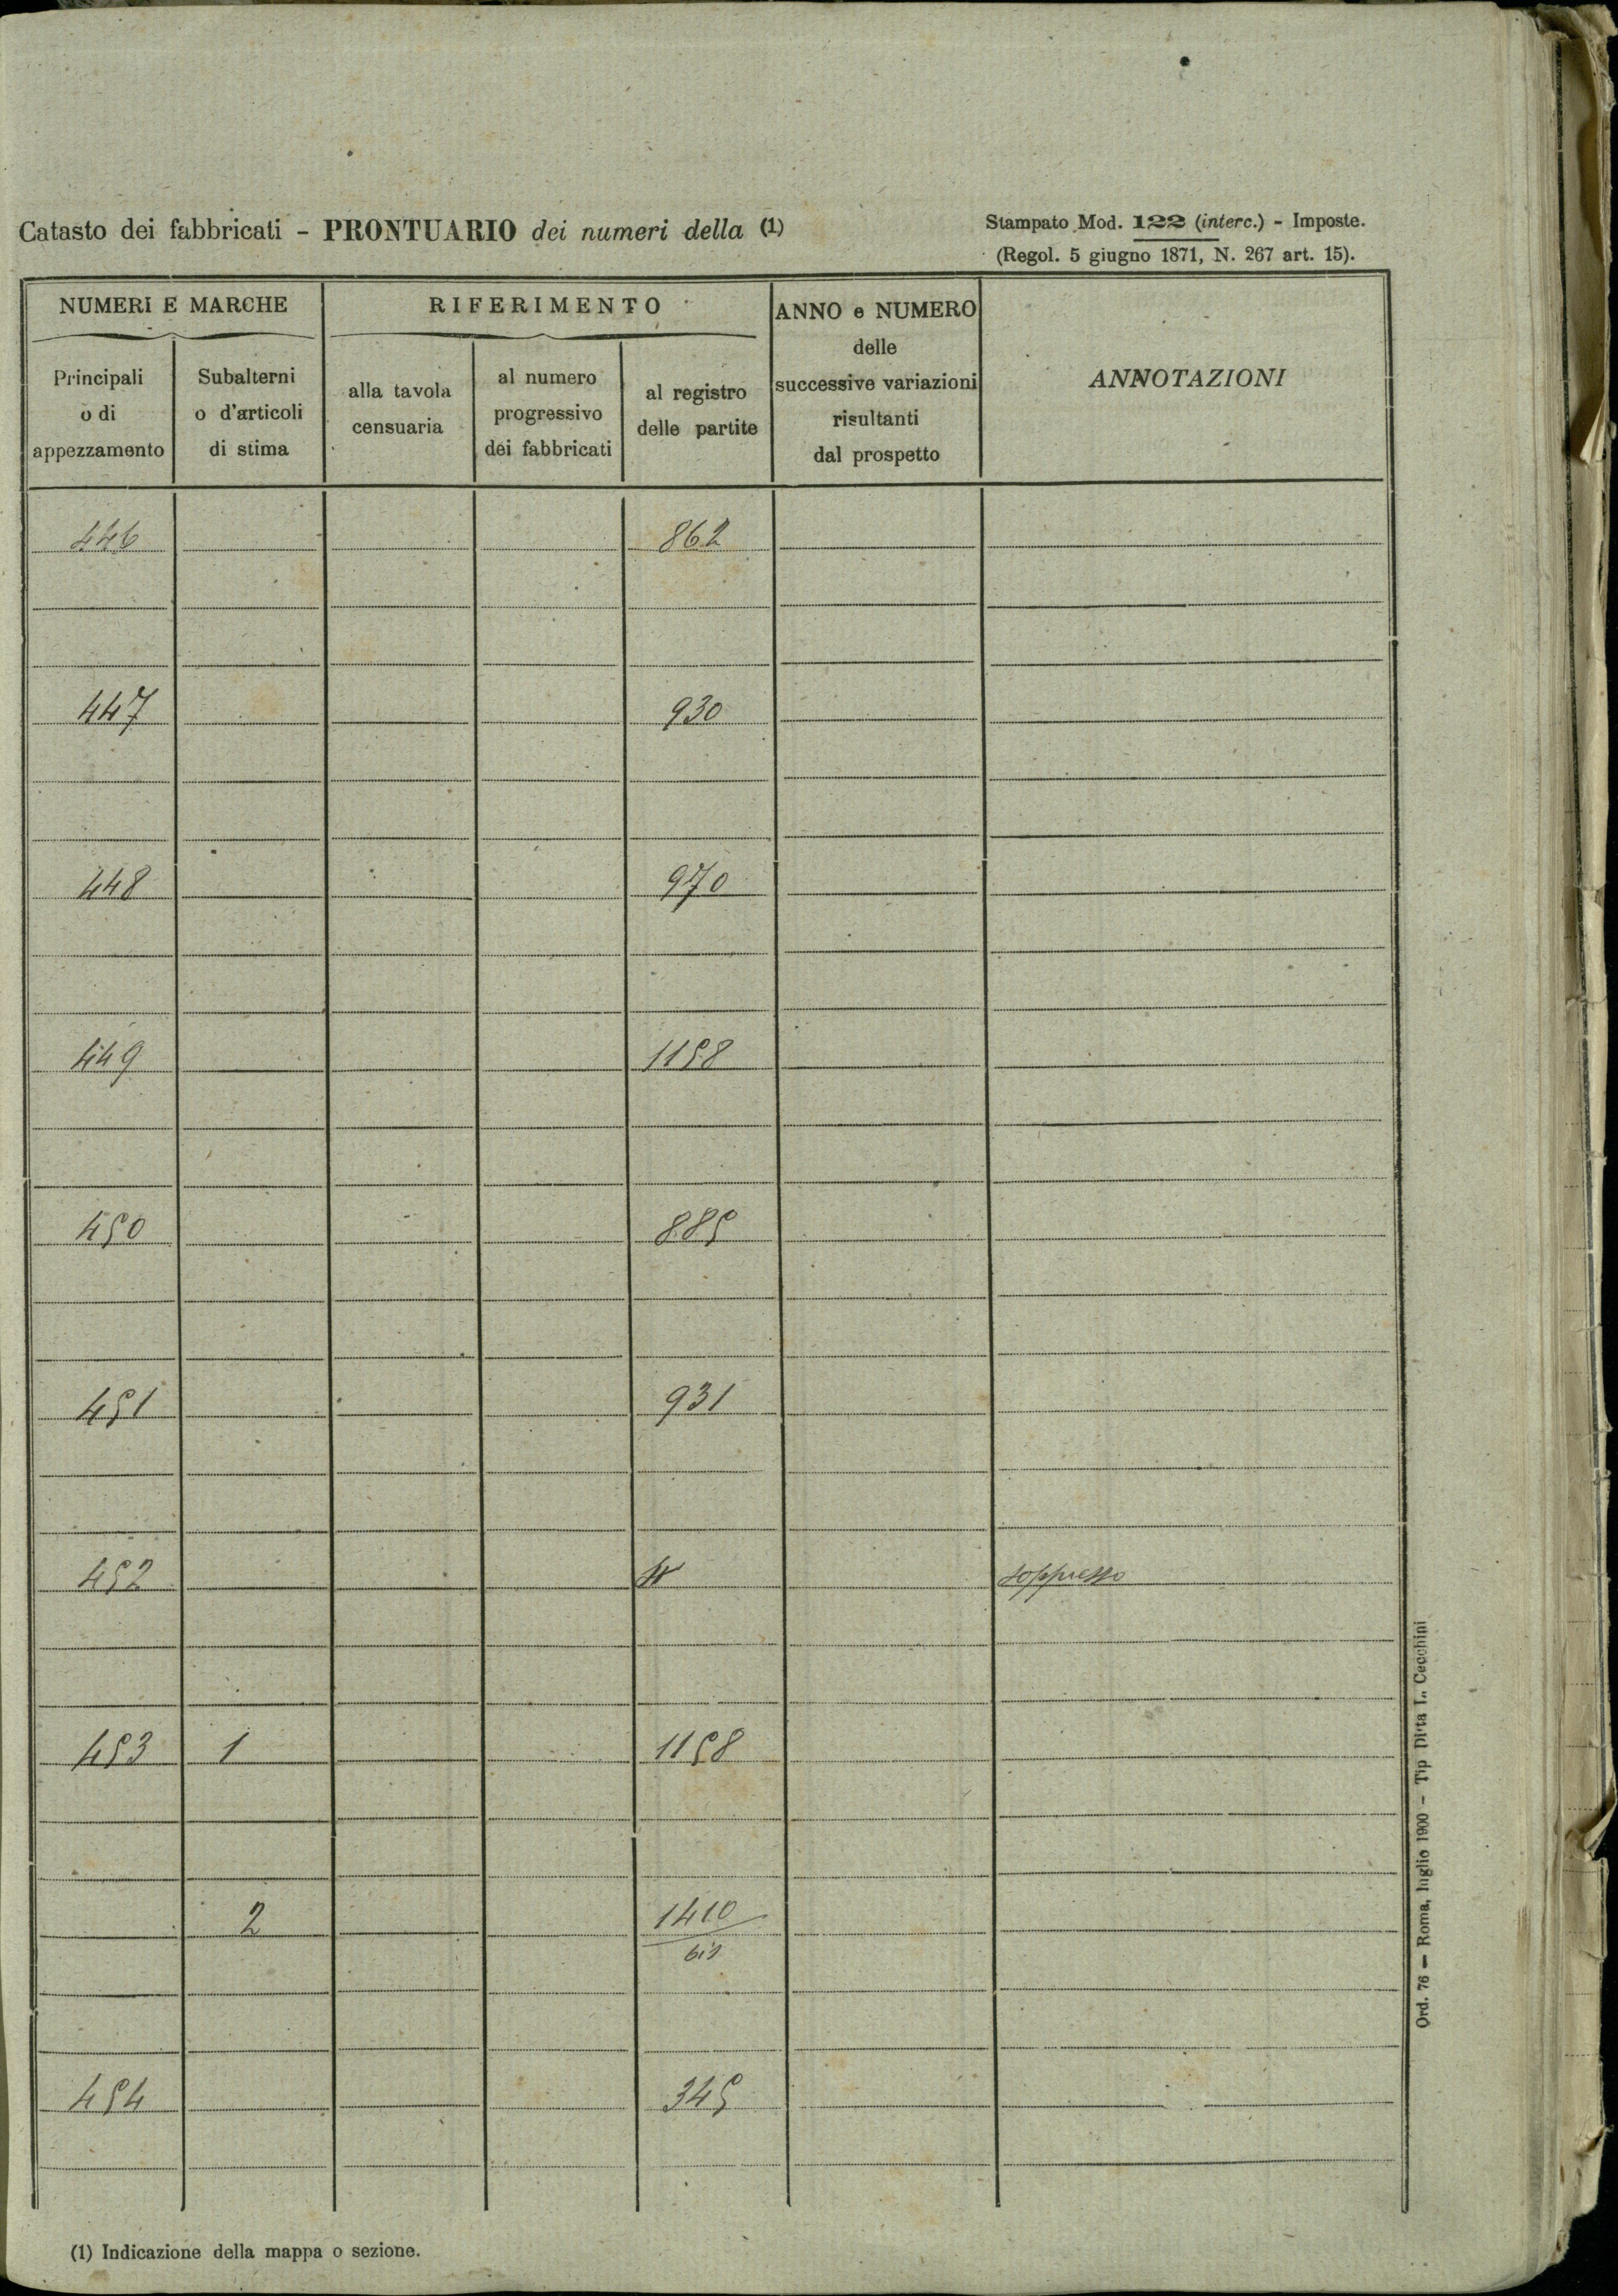 Catasto dei fabbricati - PRONTUARIO dei numeri della (1)
Stampato Mod. 122 (interc.) - Imposte.
(Regol. 5 giugno 1871, N. 267 art. 15).
NUMERI E MARCHE
RIFERIMENTO
ANNO e NUMERO
delle
successive variazioni
risultanti
dal prospetto
ANNOTAZIONI
Principali
o di
appezzamento
Subalterni
o d'articoli
di stima
alla tavola
censuaria
al numero
progressivo
dei fabbricati
al registro
delle partite
446 862
447 930
448 970
449 1158
450 885
451 931
452 soppresso
453 1 1158
2 1410
bis
454 345
(1) Indicazione della mappa o sezione.
Ord. 76 — Roma, luglio 1900 - Tip Ditta L. Cecchini